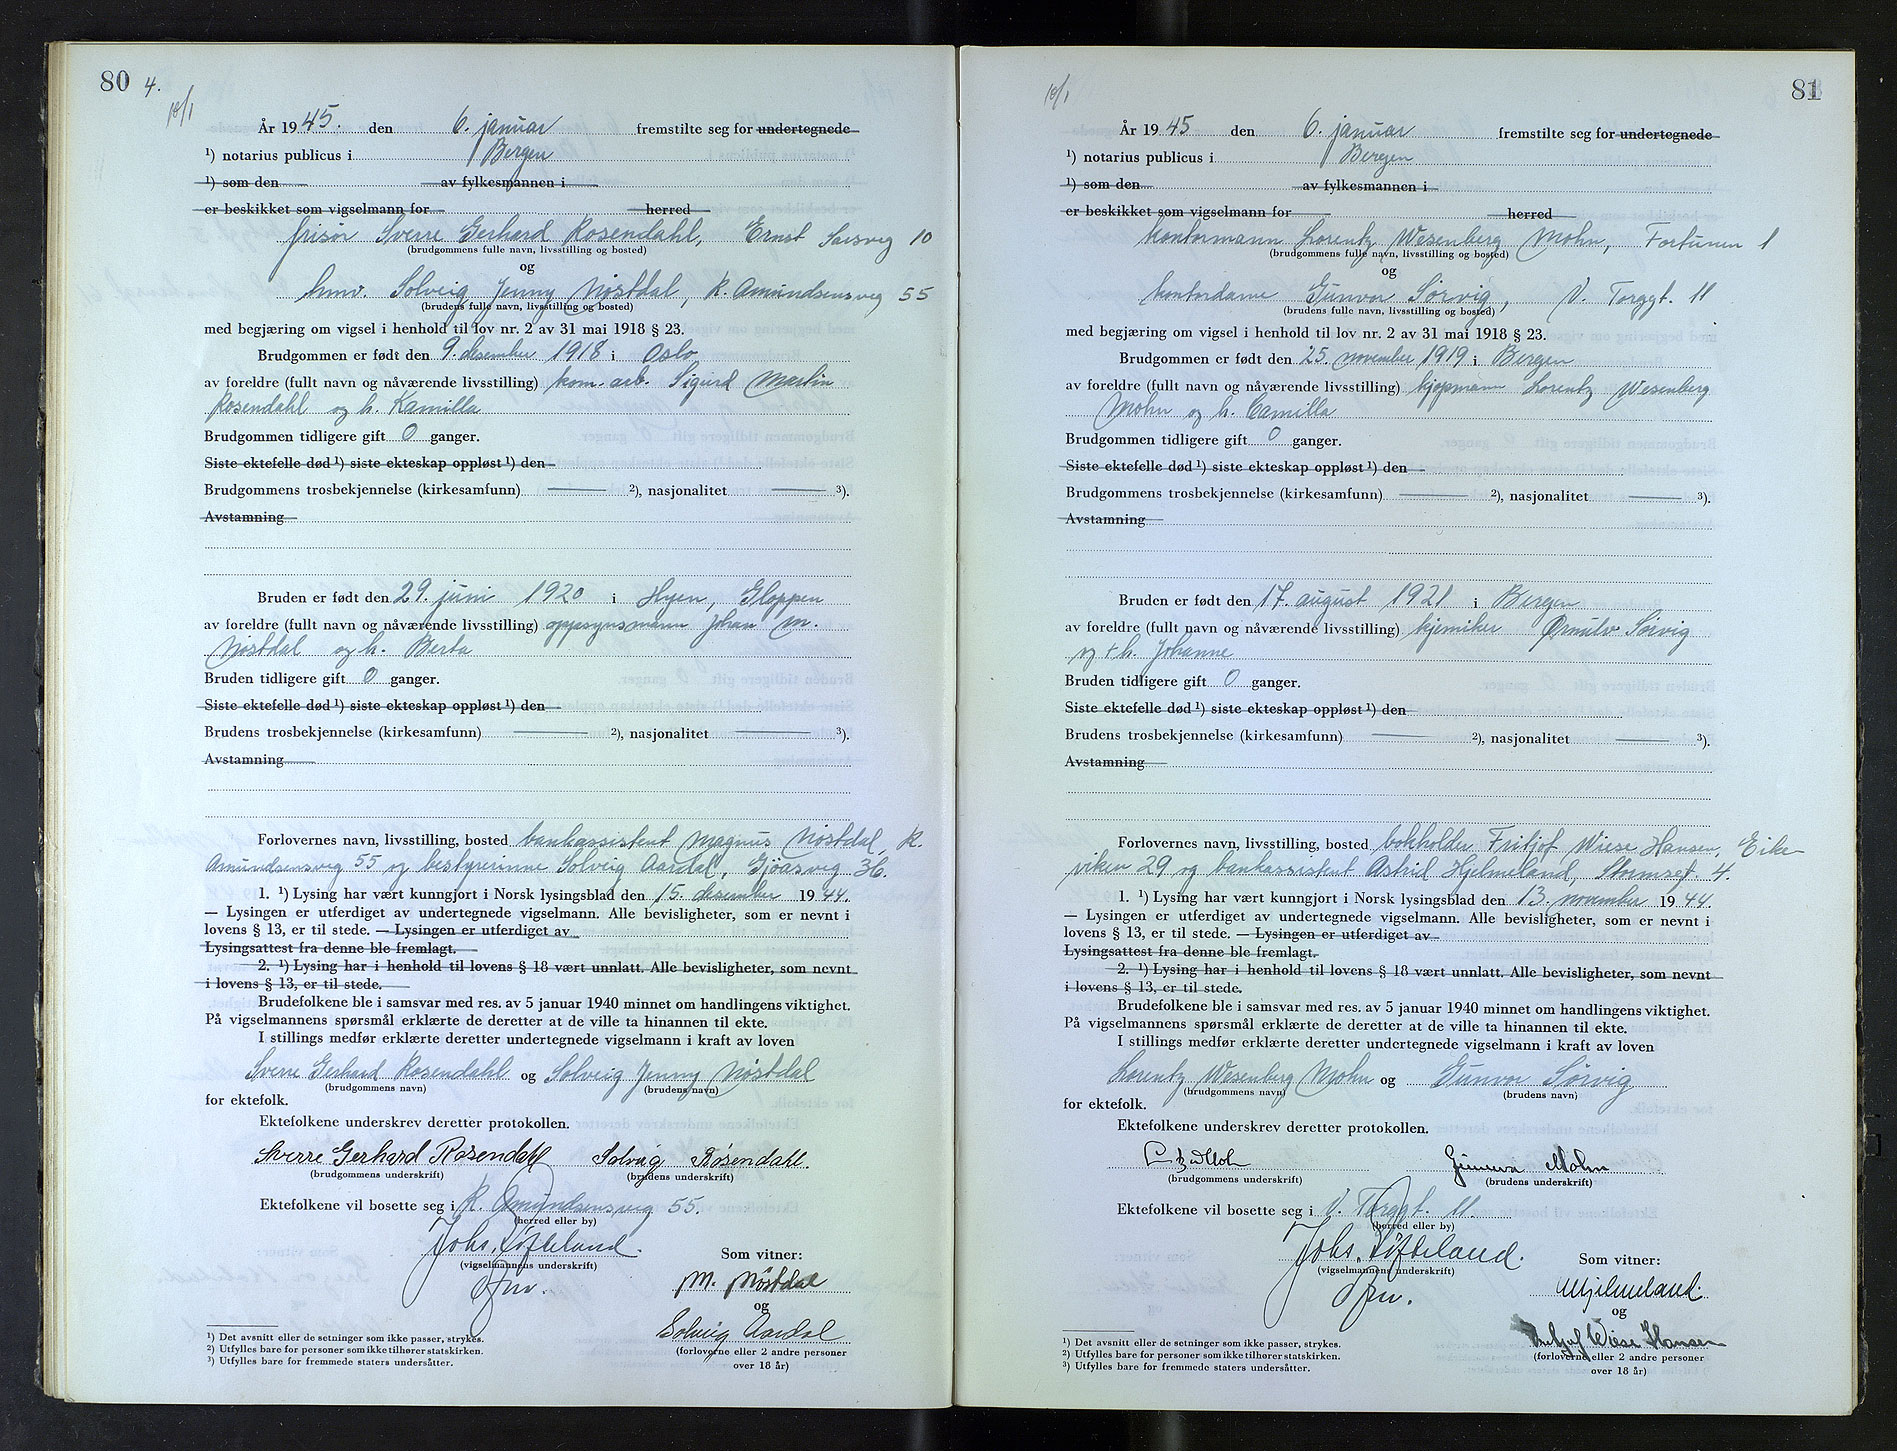 80 4.
18/1
År 1945. den 6. januar fremstilte seg for undertegnede
¹) notarius publicus i Bergen
¹) som den av fylkesmannen i
er beskikket som vigselmann for herred
frisør Sverre Gerhard Rosendahl, Ernst Sarsveg 10
(brudgommens fulle navn, livsstilling og bosted)
og
hmv. Solveig Jenny Nøstdal, R. Amundsensveg 55
(brudens fulle navn, livsstilling og bosted)
med begjæring om vigsel i henhold til lov nr. 2 av 31 mai 1918 § 23.
Brudgommen er født den 9. desember 1918 i Oslo
av foreldre (fullt navn og nåværende livsstilling) kom. arb. Sigurd Martin
Rosendahl og h. Kamilla
Brudgommen tidligere gift 0 ganger.
Siste ektefelle død ¹) siste ekteskap oppløst ¹) den
Brudgommens trosbekjennelse (kirkesamfunn) ²), nasjonalitet ³).
Avstamning
Bruden er født den 29. juni 1920 i Hyen, Gloppen
av foreldre (fullt navn og nåværende livsstilling) oppsynsmann Johan M.
Nøstdal og h. Berta
Bruden tidligere gift 0 ganger.
Siste ektefelle død ¹) siste ekteskap oppløst ¹) den
Brudens trosbekjennelse (kirkesamfunn) ²), nasjonalitet ³).
Avstamning
Forlovernes navn, livsstilling, bosted bankassistent Magnus Nøstdal, R.
Amundsensveg 55 og bestyrerinne Solveig Aardal, Gjøasveg 36.
1. ¹) Lysing har vært kunngjort i Norsk lysingsblad den 15. desember 1944.
— Lysingen er utferdiget av undertegnede vigselmann. Alle bevisligheter, som er nevnt i
lovens § 13, er til stede. — Lysingen er utferdiget av
Lysingsattest fra denne ble fremlagt.
2. ¹) Lysing har i henhold til lovens § 18 vært unnlatt. Alle bevisligheter, som nevnt
i lovens § 13, er til stede.
Brudefolkene ble i samsvar med res. av 5 januar 1940 minnet om handlingens viktighet.
På vigselmannens spørsmål erklærte de deretter at de ville ta hinannen til ekte.
I stillings medfør erklærte deretter undertegnede vigselmann i kraft av loven
Sverre Gerhard Rosendahl og Solveig Jenny Nøstdal
(brudgommens navn) (brudens navn)
for ektefolk.
Ektefolkene underskrev deretter protokollen.
Sverre Gerhard Rosendahl Solveig Rosendahl.
(brudgommens underskrift) (brudens underskrift)
Ektefolkene vil bosette seg i R. Amundsensveg 55.
(herred eller by)
Johs. Tøfteland.
(vigselmannens underskrift)
Som vitner:
M. Nøstdal
og
Solveig Aardal
(forloverne eller 2 andre personer
over 18 år)
¹) Det avsnitt eller de setninger som ikke passer, strykes.
²) Utfylles bare for personer som ikke tilhører statskirken.
³) Utfylles bare for fremmede staters undersåtter.
18/1 81
År 1945 den 6. januar fremstilte seg for undertegnede
¹) notarius publicus i Bergen
¹) som den av fylkesmannen i
er beskikket som vigselmann for herred
kontormann Lorentz Wesenberg Mohn, Fortunen 1
(brudgommens fulle navn, livsstilling og bosted)
og
kontordame Gunvor Sørvig, V. Torggt. 11
(brudens fulle navn, livsstilling og bosted)
med begjæring om vigsel i henhold til lov nr. 2 av 31 mai 1918 § 23.
Brudgommen er født den 25. november 1919 i Bergen
av foreldre (fullt navn og nåværende livsstilling) kjøpmann Lorentz Wesenberg
Mohn og h. Camilla
Brudgommen tidligere gift 0 ganger.
Siste ektefelle død ¹) siste ekteskap oppløst ¹) den
Brudgommens trosbekjennelse (kirkesamfunn) ²), nasjonalitet ³).
Avstamning
Bruden er født den 17. august 1921 i Bergen
av foreldre (fullt navn og nåværende livsstilling) kjemiker Ørnulv Sørvig
og + h. Johanne
Bruden tidligere gift 0 ganger.
Siste ektefelle død ¹) siste ekteskap oppløst ¹) den
Brudens trosbekjennelse (kirkesamfunn) ²), nasjonalitet ³).
Avstamning
Forlovernes navn, livsstilling, bosted bokholder Fritjof Wiese Hansen, Eike-
viken 29 og bankassistent Astrid Hjelmeland, Stormsgt. 4.
1. ¹) Lysing har vært kunngjort i Norsk lysingsblad den 13. november 1944.
— Lysingen er utferdiget av undertegnede vigselmann. Alle bevisligheter, som er nevnt i
lovens § 13, er til stede. — Lysingen er utferdiget av
Lysingsattest fra denne ble fremlagt.
2. ¹) Lysing har i henhold til lovens § 18 vært unnlatt. Alle bevisligheter, som nevnt
i lovens § 13, er til stede.
Brudefolkene ble i samsvar med res. av 5 januar 1940 minnet om handlingens viktighet.
På vigselmannens spørsmål erklærte de deretter at de ville ta hinannen til ekte.
I stillings medfør erklærte deretter undertegnede vigselmann i kraft av loven
Lorentz Wesenberg Mohn og Gunvor Sørvig
(brudgommens navn) (brudens navn)
for ektefolk.
Ektefolkene underskrev deretter protokollen.
Gunvor Mohn
(brudgommens underskrift) (brudens underskrift)
Ektefolkene vil bosette seg i V. Torggt. 11.
(herred eller by)
Johs. Tøfteland.
(vigselmannens underskrift)
Som vitner:
AHjelmeland.
og
Fritjof Wiese Hansen
(forloverne eller 2 andre personer
over 18 år)
¹) Det avsnitt eller de setninger som ikke passer, strykes.
²) Utfylles bare for personer som ikke tilhører statskirken.
³) Utfylles bare for fremmede staters undersåtter.